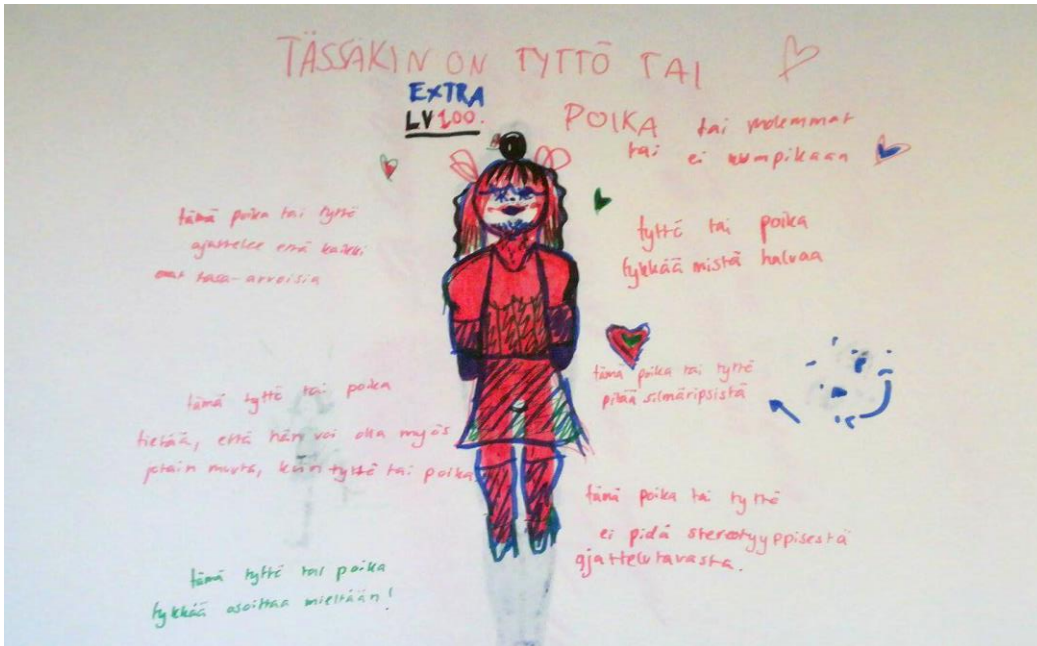 TÄSSÄKIN ON TYTTÖ TAI
POIKA tai molemmat
tai ei kumpikaan
EXTRA
LV100.
tämä poika tai tyttö
ajattelee että kaikki
ovat tasa-arvoisia
tyttö tai poika
tykkää mistä haluaa
tämä poika tai tyttö
pitää silmäripsistä
tämä tyttö tai poika
tietää, että hän voi olla myös
jotain muuta, kuin tyttö tai poika.
tämä poika tai tyttö
ei pidä stereotyyppisestä
ajattelutavasta.
tämä tyttö tai poika
tykkää osoittaa mieltään!